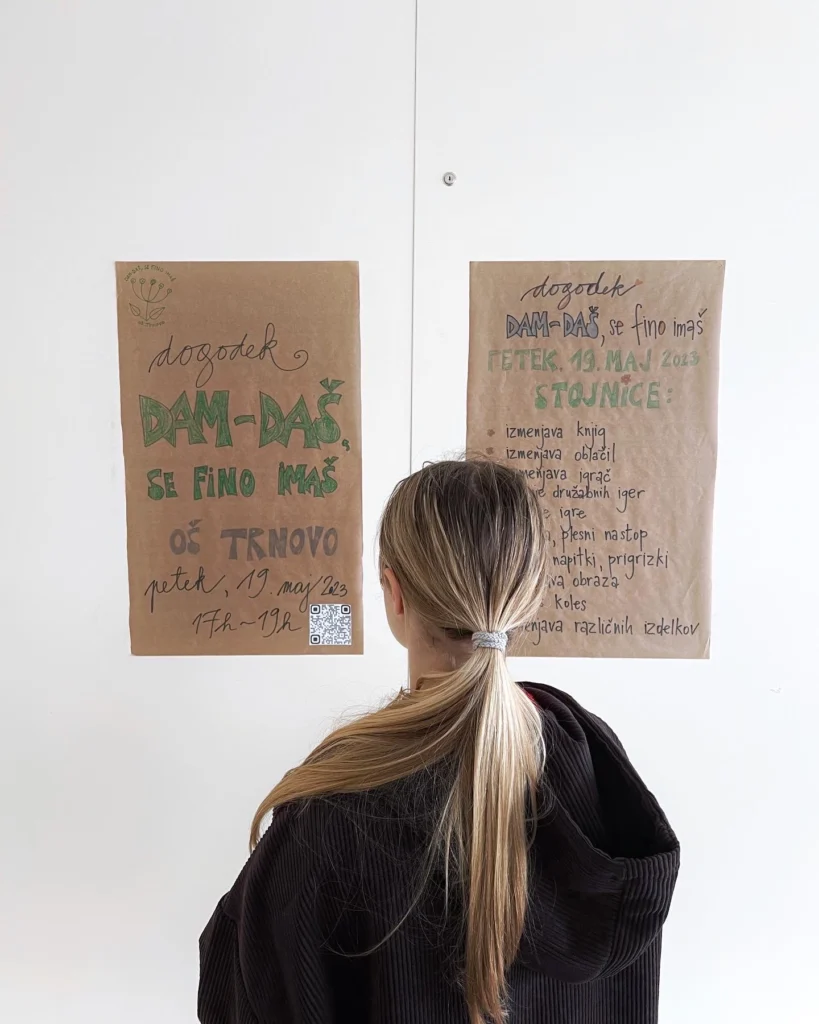 dogodek
DAM-DAŠ,
SE FINO IMAŠ
OŠ TRNOVO
petek, 19. maj 2023
17h-19h
dogodek
DAM-DAŠ, se fino imaš
PETEK, 19. MAJ 2023
STOJNICE:
izmenjava knjig
izmenjava oblačil
igrač
družabnih iger
igre
plesni nastop
napitki, prigrizki
obraza
koles
različnih izdelkov